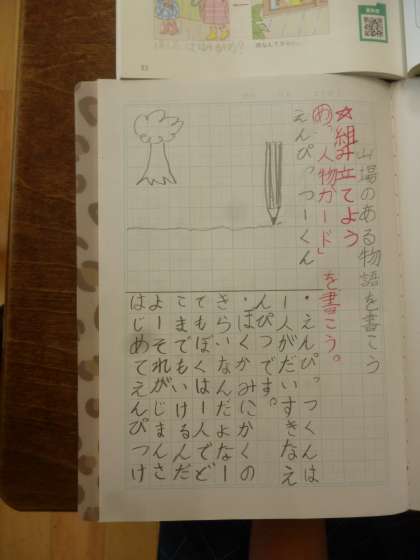 山場のある物語を書こう
☆組み立てよう
め、「人物カード」を書こう。
えんぴっつーくん
・えんぴっつくんは
一人がだいすきなえ
んぴつです。
・ぼくかみにかくの
きらいなんだよなー
でもぼくは一人でど
こまでもいけるんだ
よーそれがじまんさ
はじめてえんぴつけ
53